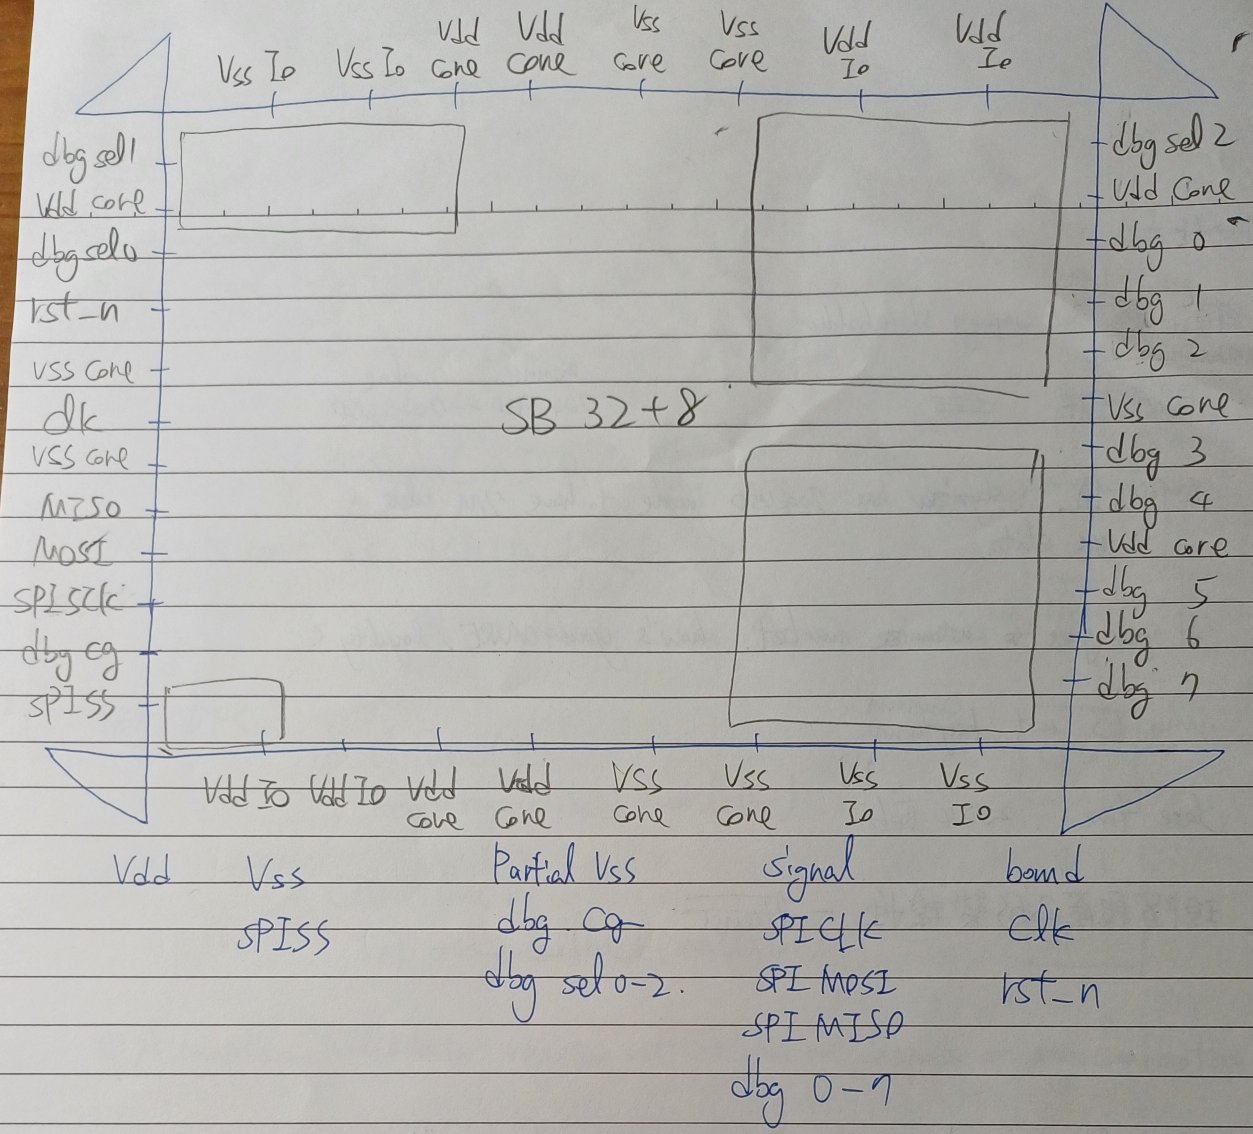 Vss Io Vss Io Vdd core Vdd core Vss core Vss core Vdd Io Vdd Io
dbg sel1
Vdd core
dbg sel0
rst_n
VSS core
clk
VSS core
MISO
MOSI
SPI SCLK
dbg cg
SPISS
SB 32+8
dbg sel 2
Vdd Core
dbg 0
dbg 1
dbg 2
Vss core
dbg 3
dbg 4
Vdd core
dbg 5
dbg 6
dbg 7
Vdd IO Vdd IO Vdd core Vdd core VSS core Vss core Vss Io Vss IO
Vdd Vss Partial Vss signal bound
SPISS dbg cg SPI CLK clk
dbg sel 0-2. SPI MOSI rst_n
SPI MISO
dbg 0-7